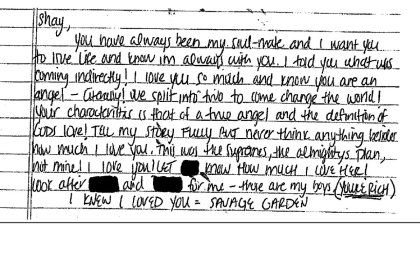 Shay,
You have always been my soul-mate and I want you
to live life and know im always with you. I told you what was
coming indirectly! I love you so much and know you are an
angel - literally! We split into two to come change the world!
Your characteristics is that of a true angel and the definition of
GODS love! Tell my story fully but never think anything besides
how much I love you. This was the supremes, the almightys plan,
not mine! I love you! LET know HOW MUCH I LOVE HER!
look after and for me - those are my boys (YOU'RE RICH)
I KNEW I LOVED YOU = SAVAGE GARDEN